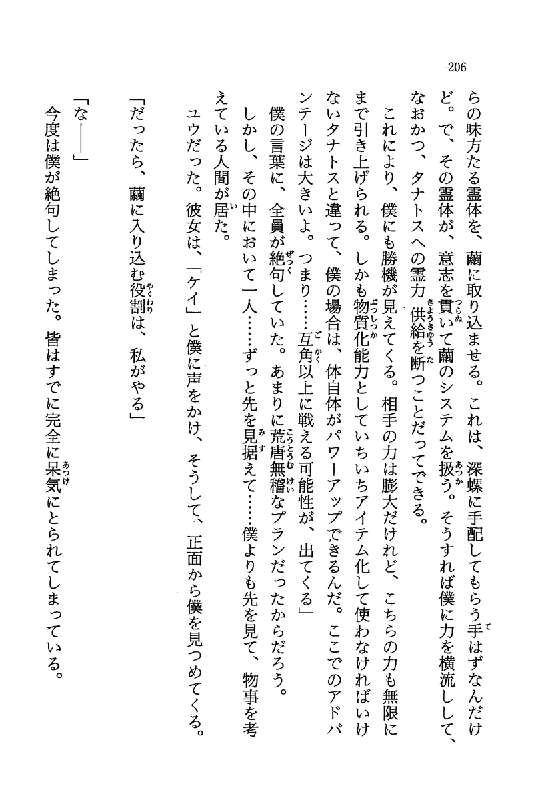 206
らの味方たる霊体を、繭に取り込ませる。これは、深螺に手配してもらう手はずなんだけ
ど。で、その霊体が、意志を貫いて繭のシステムを扱う。そうすれば僕に力を横流しして、
なおかつ、タナトスへの霊力供給を断つことだってできる。
これにより、僕にも勝機が見えてくる。相手の力は膨大だけれど、こちらの力も無限に
まで引き上げられる。しかも物質化能力としていちいちアイテム化して使わなければいけ
ないタナトスと違って、僕の場合は、体自体がパワーアップできるんだ。ここでのアドバ
ンテージは大きいよ。つまり……互角以上に戦える可能性が、出てくる」
僕の言葉に、全員が絶句していた。あまりに荒唐無稽なプランだったからだろう。
しかし、その中において一人……ずっと先を見据えて……僕よりも先を見て、物事を考
えている人間が居た。
ユウだった。彼女は、「ケイ」と僕に声をかけ、そうして、正面から僕を見つめてくる。
「だったら、繭に入り込む役割は、私がやる」
「な――」
今度は僕が絶句してしまった。皆はすでに完全に呆気にとられてしまっている。